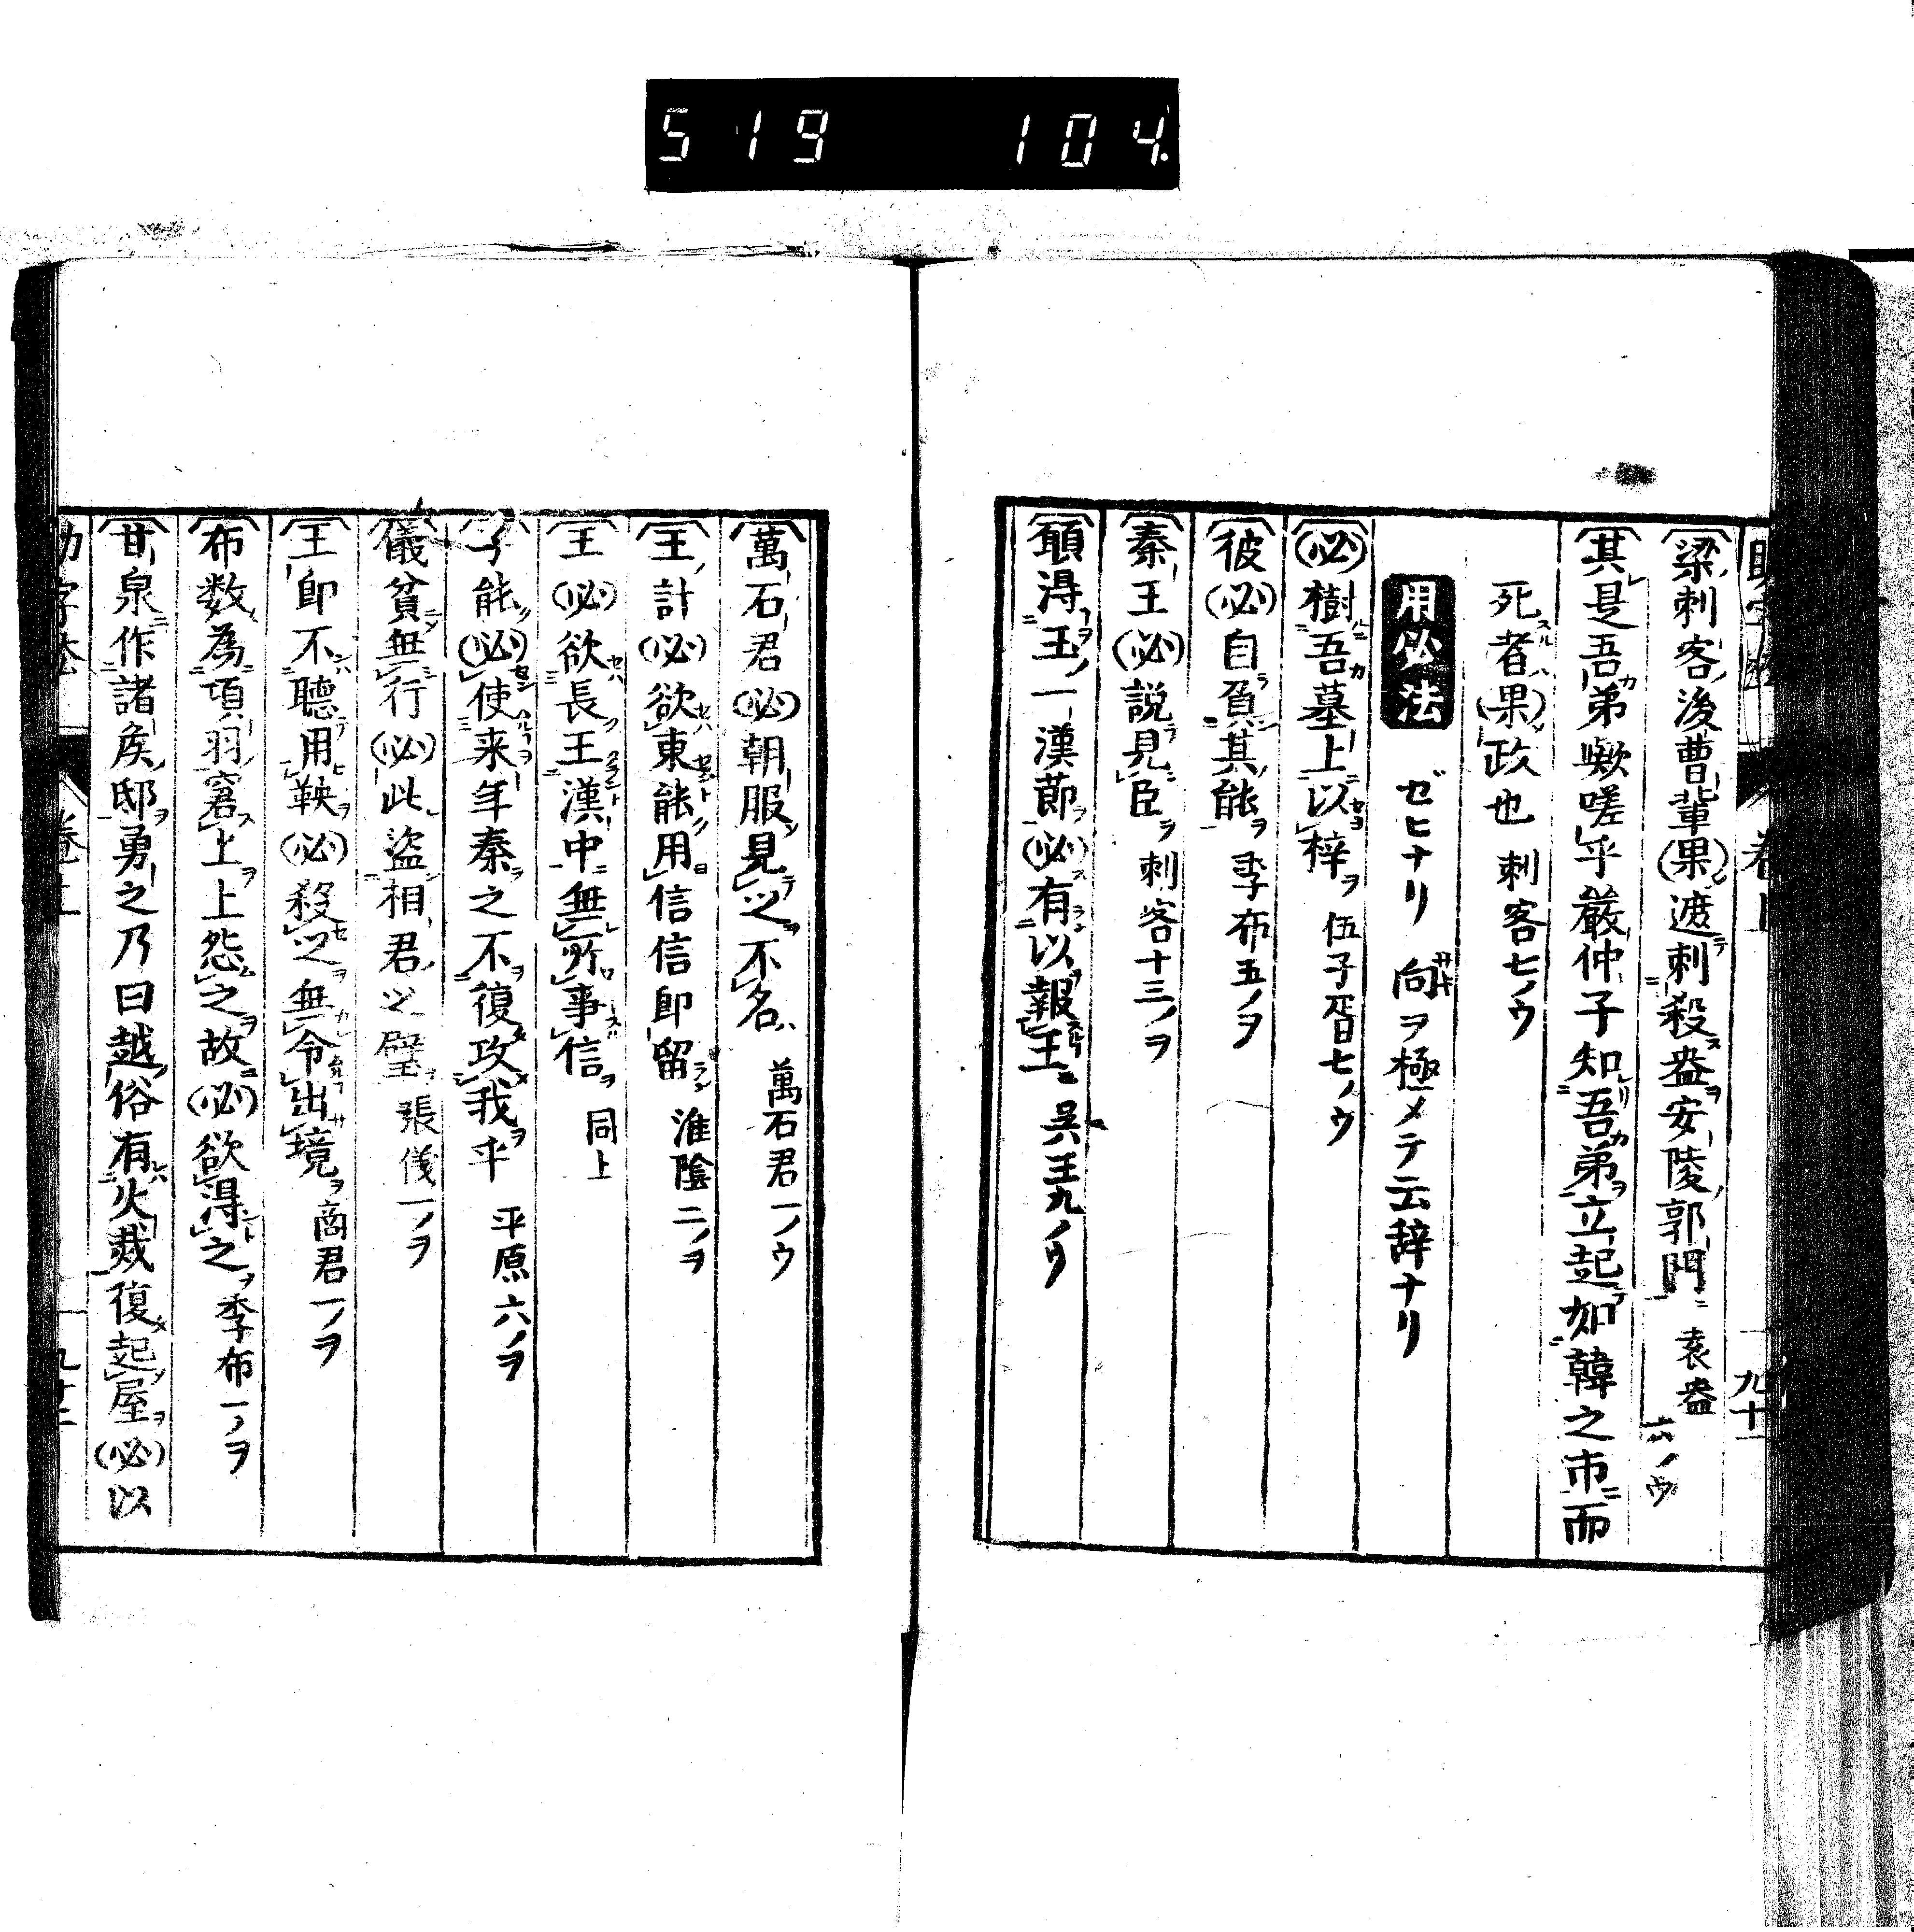 519 104
梁刺客後曹輩果遮刺殺盎安陵郭門 袁盎六ノウ
其是吾弟歟嗟乎嚴仲子知吾弟立起如韓之市而
死者果政也 刺客七ノウ
用必法 ゼヒナリ 向ヲ極メテ云辞ナリ
必樹吾墓上以梓 伍子胥七ノウ
彼必自負其能 季布五ノヲ
秦王必説見臣 刺客十三ノヲ
願得王一漢節必有以報王 呉王九ノウ
萬石君必朝服見之不名 萬石君一ノウ
王計必欲東能用信信即留 淮陰二ノヲ
王必欲長王漢中無所事信 同上
子能必使来年秦之不復攻我乎 平原六ノヲ
儀貧無行必此盗相君之璧 張儀一ノヲ
王即不聴用鞅必殺之無令出境 商君一ノヲ
布数為項羽窘上上怨之故必欲得之 季布一ノヲ
甘泉作諸矦邸勇之乃曰越俗有火烖復起屋必以